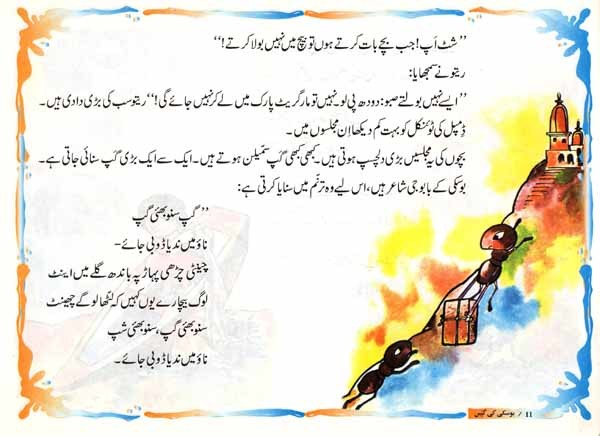 ”شٹ اَپ! جب بچے بات کرتے ہوں تو بیچ میں نہیں بولا کرتے!“
ریتو نے سمجھایا:
”ایسے نہیں بولتے صبو: دودھ پی لو۔ نہیں تو مارگریٹ پارک میں لے کر نہیں جائے گی!“ ریتو سب کی بڑی دادی ہیں۔
ڈمپل کی ٹونکل کو بہت کم دیکھا اِن مجلسوں میں۔
بچوں کی یہ مجلسیں بڑی دلچسپ ہوتی ہیں۔ کبھی کبھی گپ سمیلن ہوتے ہیں۔ ایک سے ایک بڑی گپ سنائی جاتی ہے۔
بوسکی کے بابو جی شاعر ہیں، اس لیے وہ ترنّم میں سنایا کرتی ہے:
”گپ سنو بھئی گپ
ناؤ میں ندیا ڈوبی جائے۔
چینٹی چڑھی پہاڑ پہ باندھ گلے میں اینٹ
لوگ بیچارے یوں کہیں کہ لٹھا لو گے چھینٹ
سنو بھئی گپ، سنو بھئی شپ
ناؤ میں ندیا ڈوبی جائے۔
11 / بوسکی کی گپیں